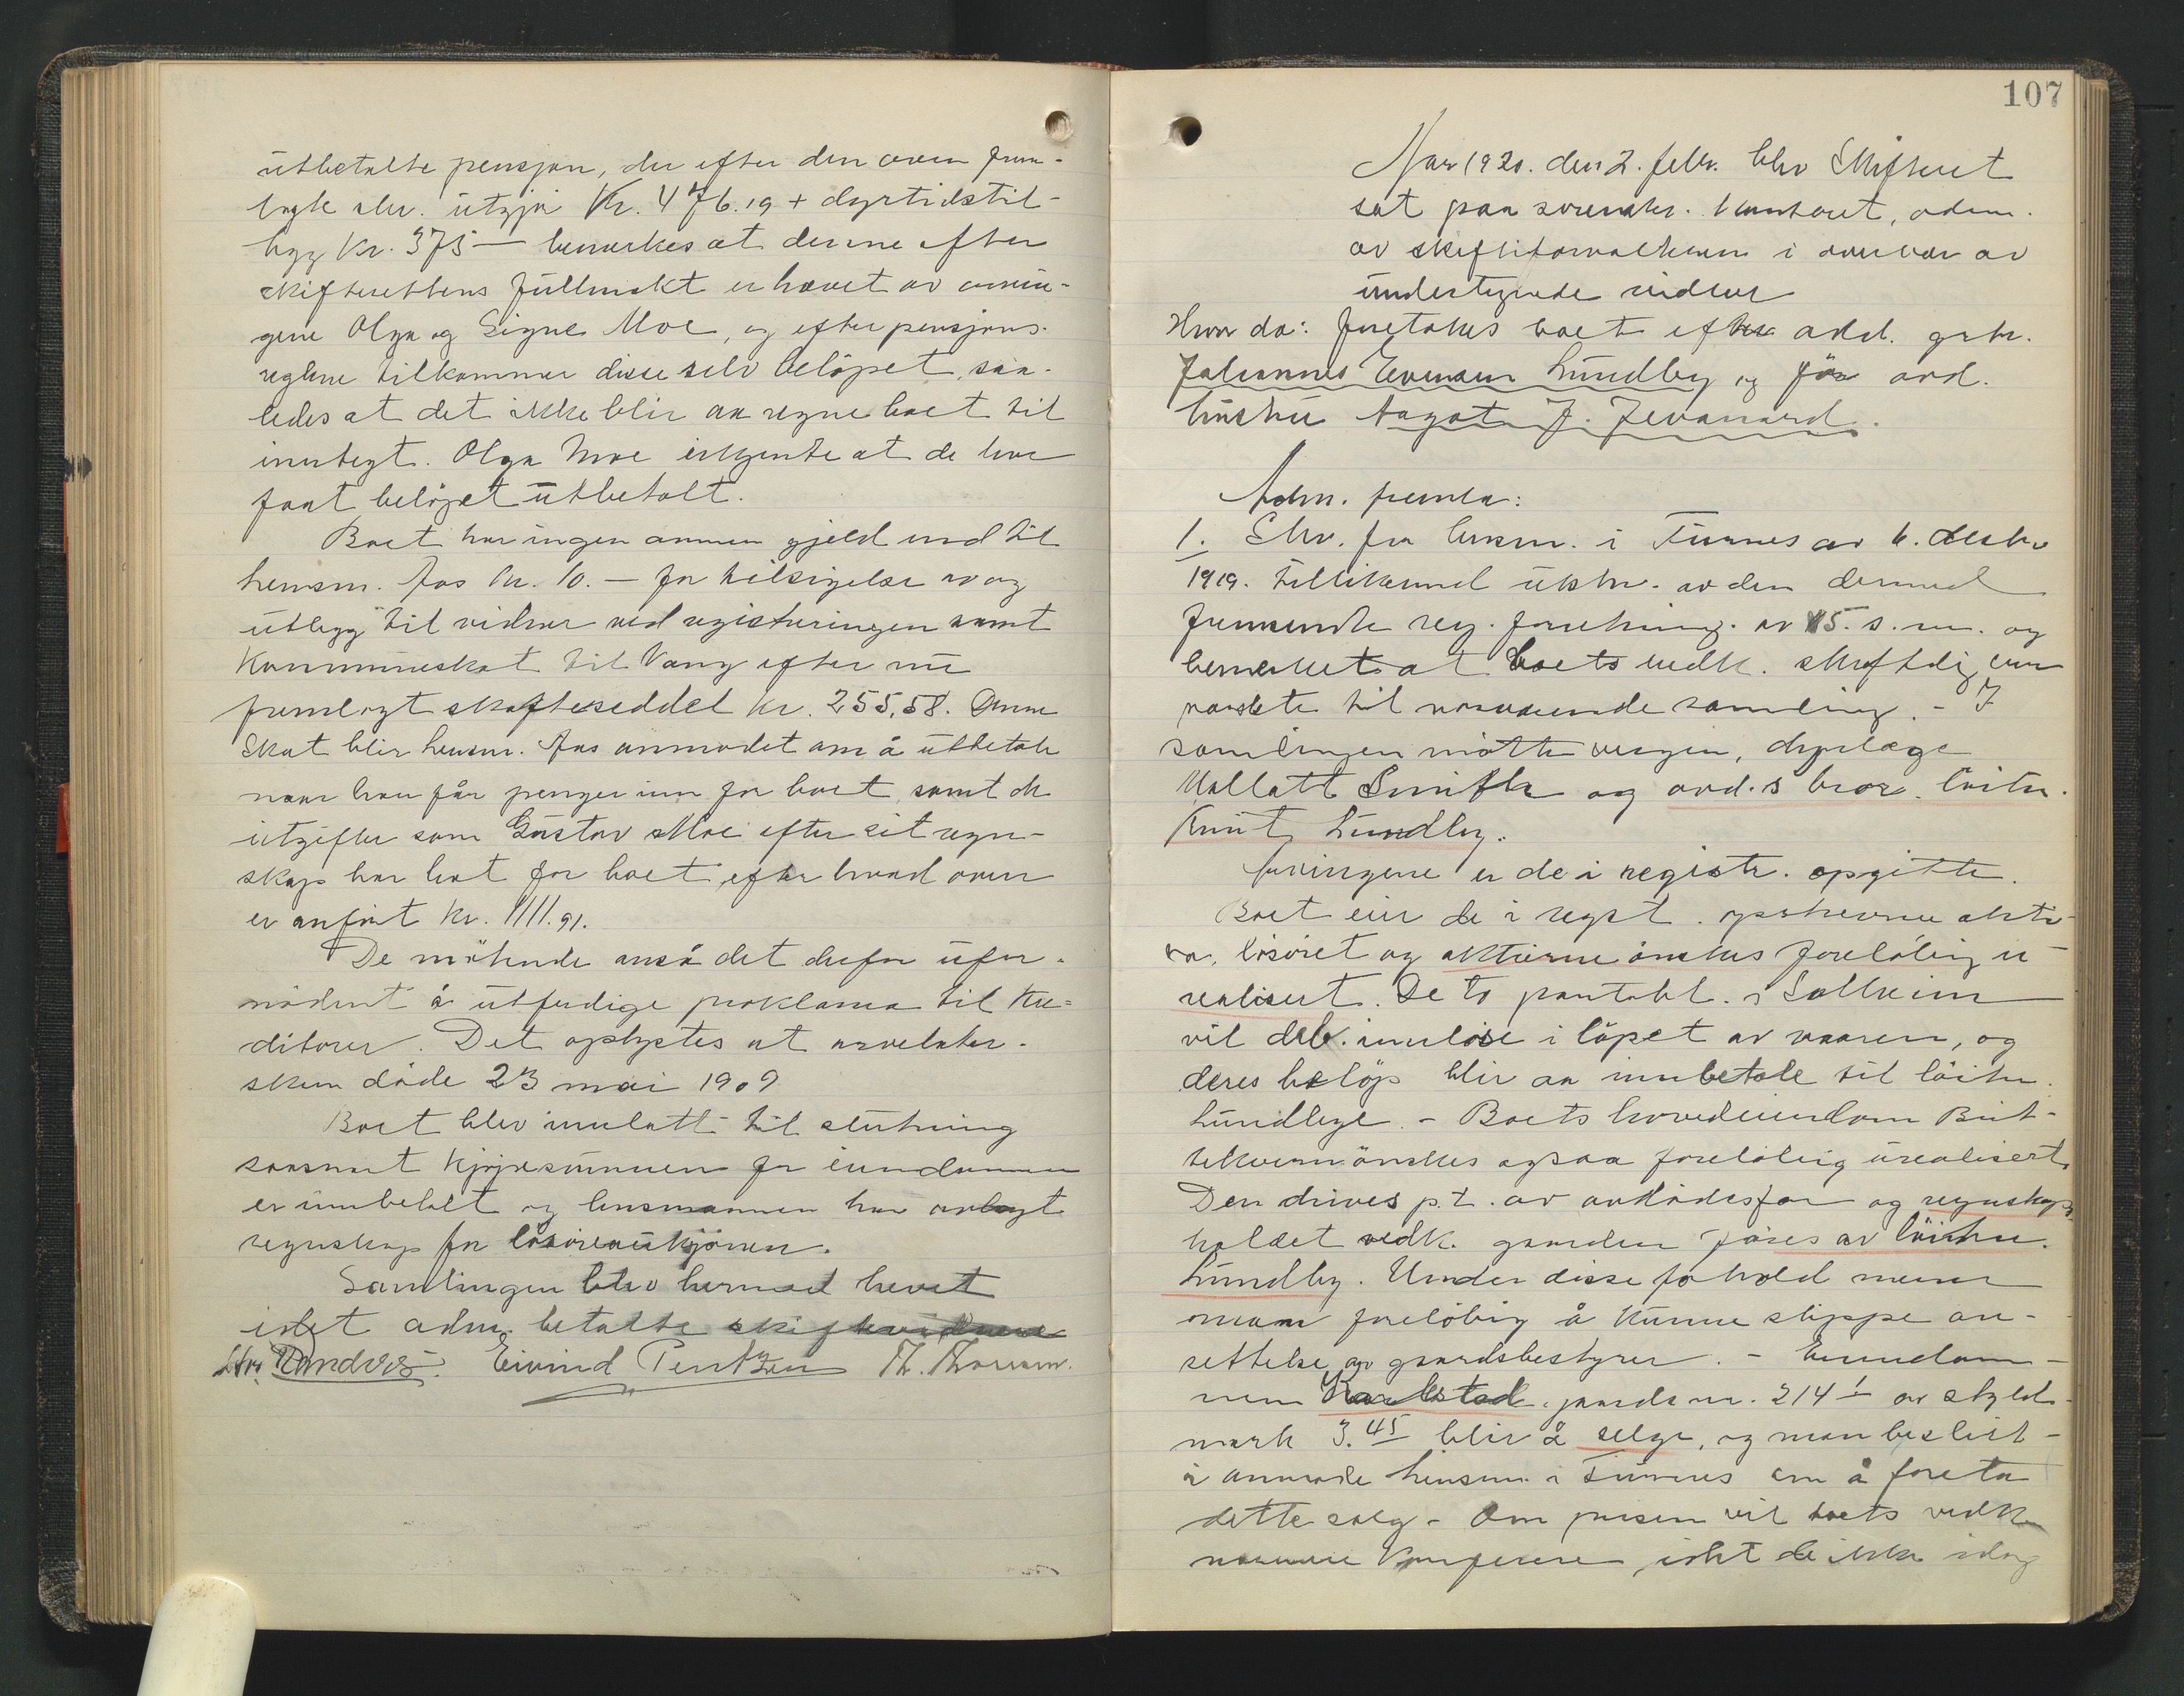 utbetalte pensjon, der efter den oven frem-
lagte skr. utgjør Kr. 476.19 + dyrtidstil-
legg Kr. 375 — bemerkes at denne efter
skifterettens fullmakt er hævet av arvin-
gene Olga og Signe Moe, og efter pensjons-
reglene tilkommer disse selv beløpet, saa-
ledes at det ikke blir aa regne boet til
inntegt. Olga Moe erkjente at de har
faat beløpet utbetalt.
Boet har ingen annen gjeld end til
lensm. Aas kr. 10. — for tilsigelse av og
utlegg til vidner ved registreringen samt
Kommuneskat til Vang efter nu
fremlagt skatteseddel kr. 255,58. Denne
skat blir lensm. Aas anmodet om å utbetale
naar han får penger inn for boet, samt de
utgifter som Gustav Moe efter sit regn-
skap har hat for boet, efter hvad oven
er anført kr. 1111.91.
De møtende anså det derfor ufor-
nødent å utferdige proklama til kre-
ditorer. Det oplystes at arvelater-
sken døde 23 mai 1909
Boet blev innlatt til slutning
saasnart kjøpesummen for eiendommen
er innbetalt og lensmannen har avlagt
regnskap for løsøreauksjonen.
Samlingen blev hermed hevet
idet adm. betalte skiftevidnene
Eivind Pentzen Th.
107
Aar 1920. den 2. febr. blev Skifteret
sat paa sorenskr. kontoret, adm.
av skifteforvalteren i overvær av
undertegnede vidner
Hvor da: foretokes boet efter avd. grbr.
Johannes Evensen Lundby og før avd.
hustru Aagot J. Jevanord.
Adm. fremla:
1. Skr. fra lensm. i Furnes av 6. desbr
1919. tillikemed utskr. av den dermed
fremsendte reg. forretning av 15. s.m. og
bemerket at boets vedk. skriftlig var
varslet til nærværende samling. - I
samlingen møtte vergen, dyrlæge
Hallatt Smith og avd.s bror, løitn.
Knut Lundby.
Arvingene er de i registr. opgitte.
Boet eier de i regist. opskrevne akti-
va. løsøret og aktierne ønskes foreløbig u-
realisert. De to pantobl. i Solheim
vil deb. innløse i løpet av vaaren, og
deres beløp blir aa innbetale til løitn.
Lundbye. - Boets hovedeiendom But-
tekvern ønskes ogsaa foreløbig urealisert.
Den drives p.t. av avdødes far og regnskaps
holdet vedk. gaarden føres av løitn.
Lundby. Under disse forhold mener
man foreløbig å kunne slippe an-
settelse av gaardsbestyrer. - Eiendom-
men Karlstad, gaards nr. 214 1 av skyld-
mark 3.45 blir å selge, og man beslut-
å anmode lensm. i Furnes om å foreta
dette salg - Om prisen vil boets vedk
nærmere konferere, idet de ikke idag